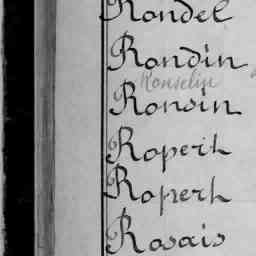 Rondel
Rondin
Ronselin
Ronsin
Roperh
Roperh
Rosais